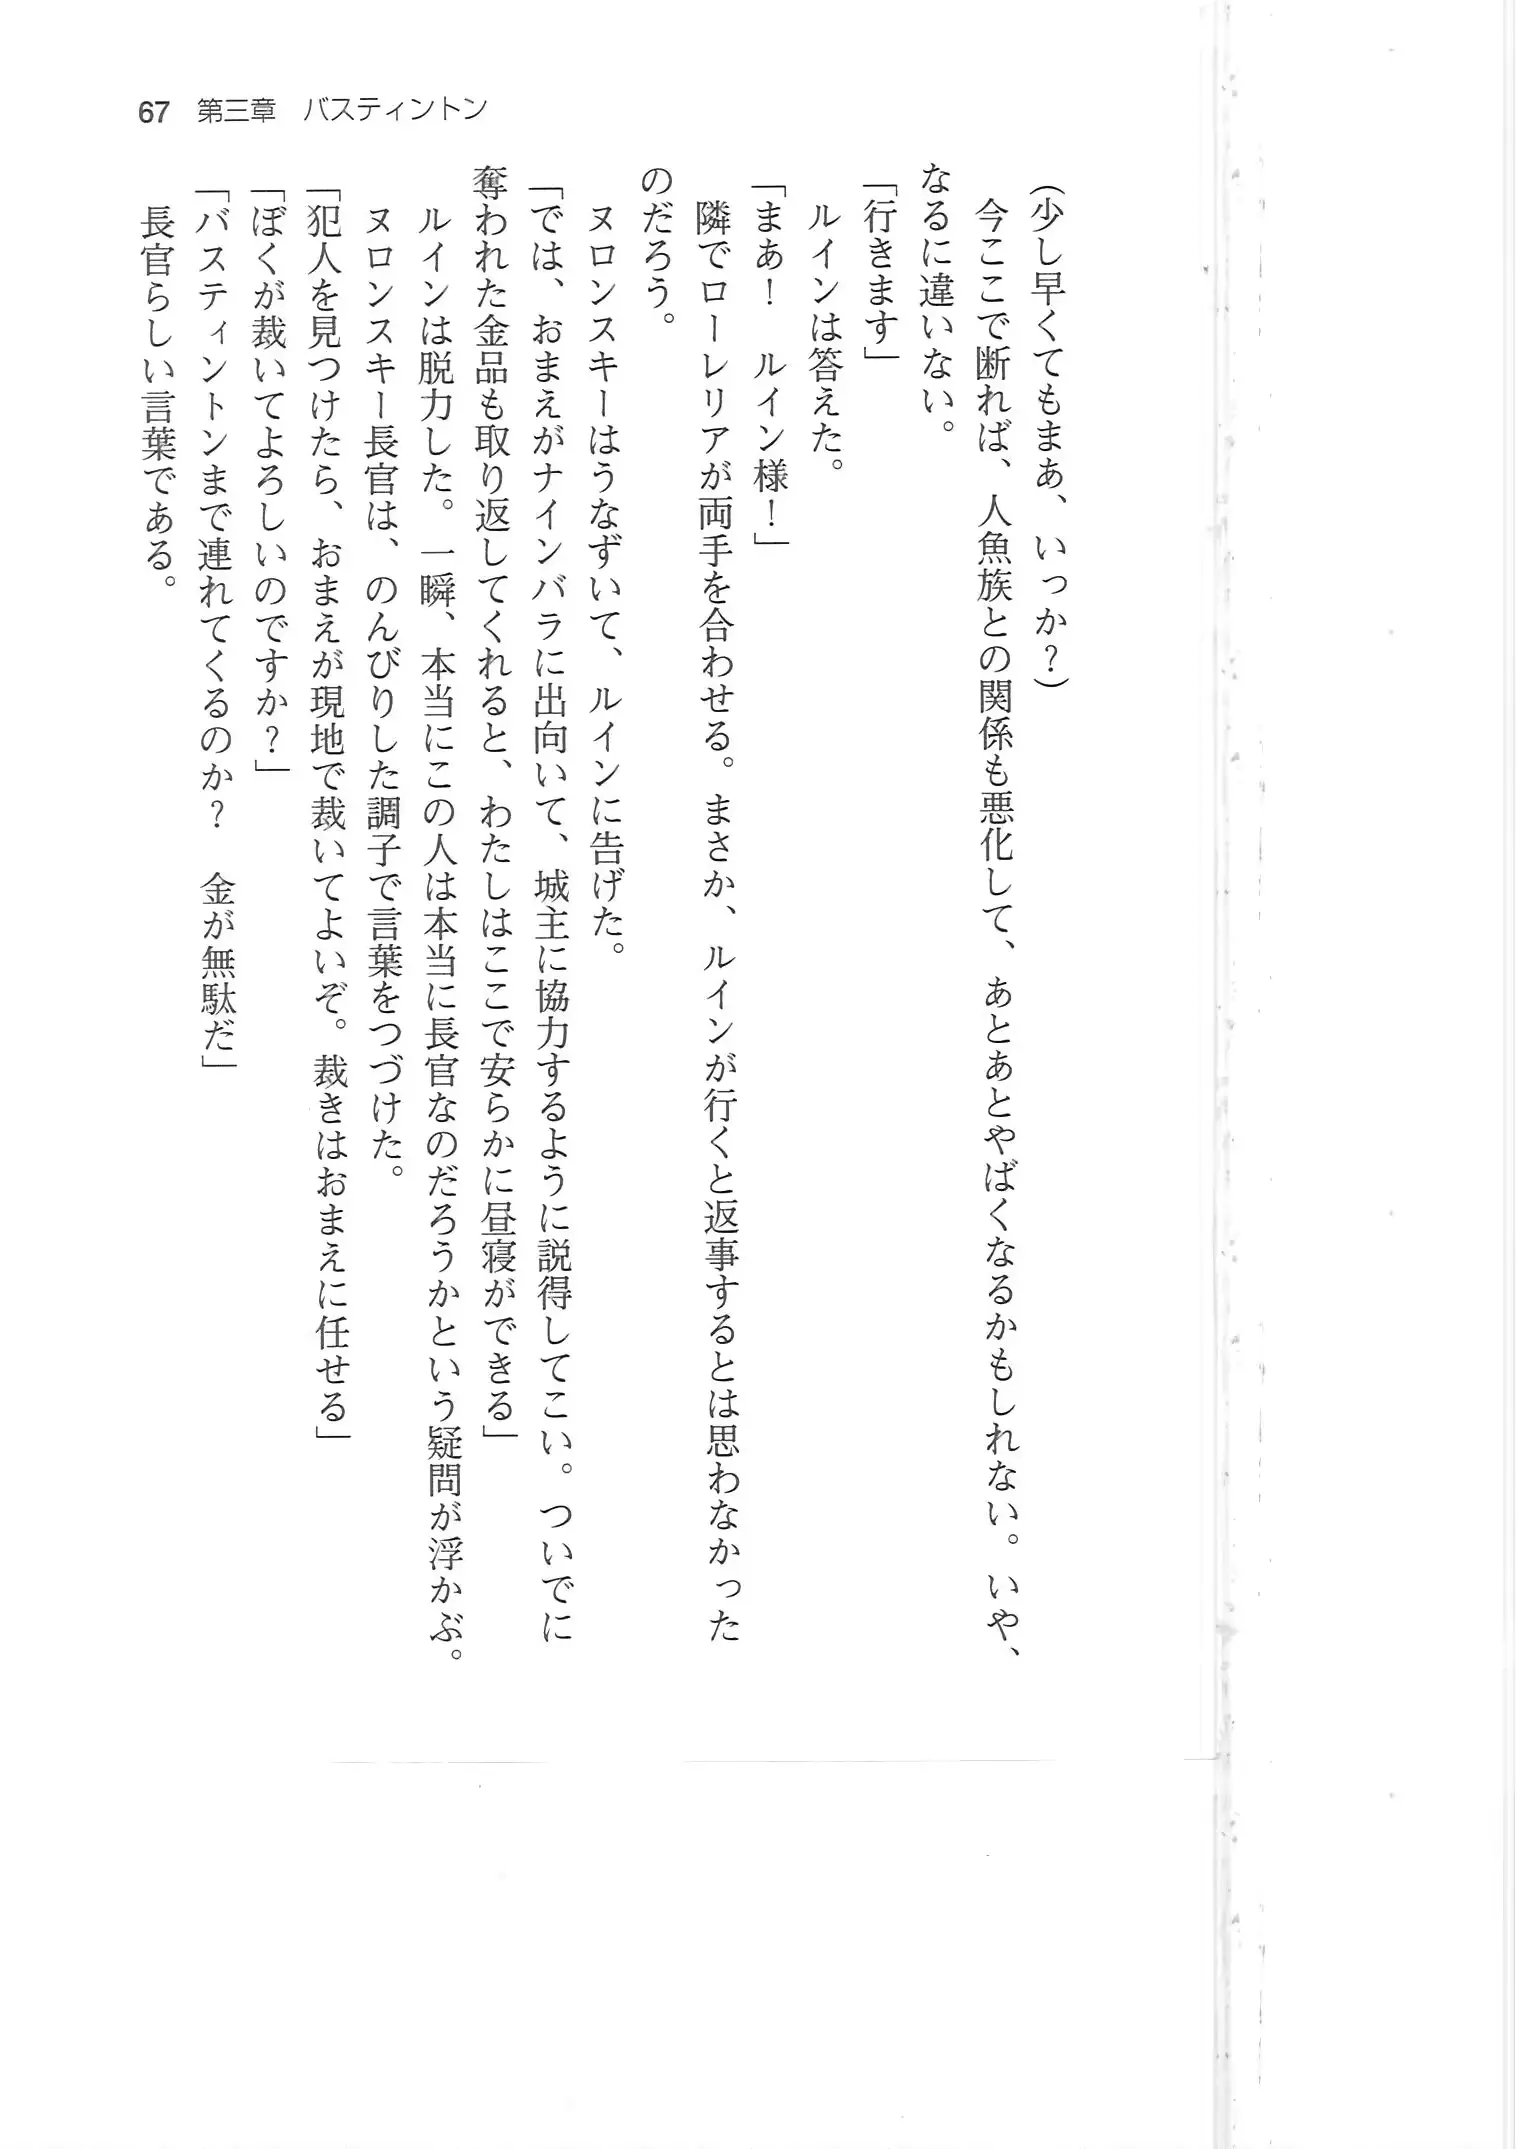 67 第三章 バスティントン
(少し早くてもまあ、いっか？)
　今ここで断れば、人魚族との関係も悪化して、あとあとやばくなるかもしれない。いや、
なるに違いない。
「行きます」
　ルインは答えた。
「まあ！　ルイン様！」
　隣でローレリアが両手を合わせる。まさか、ルインが行くと返事するとは思わなかった
のだろう。
　ヌロンスキーはうなずいて、ルインに告げた。
「では、おまえがナインバラに出向いて、城主に協力するように説得してこい。ついでに
奪われた金品も取り返してくれると、わたしはここで安らかに昼寝ができる」
　ルインは脱力した。一瞬、本当にこの人は本当に長官なのだろうかという疑問が浮かぶ。
　ヌロンスキー長官は、のんびりした調子で言葉をつづけた。
「犯人を見つけたら、おまえが現地で裁いてよいぞ。裁きはおまえに任せる」
「ぼくが裁いてよろしいのですか？」
「バスティントンまで連れてくるのか？　金が無駄だ」
　長官らしい言葉である。